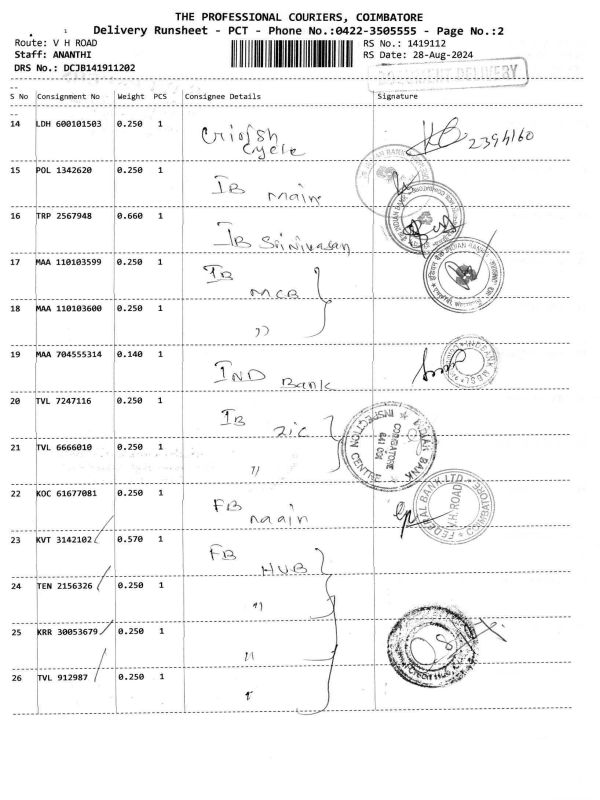 THE PROFESSIONAL COURIERS, COIMBATORE
Delivery Runsheet - PCT - Phone No.:0422-3505555 - Page No.:2
Route: V H ROAD
RS No.: 1419112
Staff: ANANTHI
RS Date: 28-Aug-2024
DRS No.: DCJB141911202
DELIVERY
S No Consignment No Weight PCS Consignee Details Signature
14 LDH 600101503 0.250 1 Cycle 2394160
15 POL 1342620 0.250 1 IB main
16 TRP 2567948 0.660 1 IB Srinivasan
17 MAA 110103599 0.250 1 IB MCB
18 MAA 110103600 0.250 1 ,,
19 MAA 704555314 0.140 1 IND Bank
20 TVL 7247116 0.250 1 IB ZIC
INDIAN BANK
INSPECTION CENTRE
COIMBATORE
641 001
21 TVL 6666010 0.250 1 ,,
22 KOC 61677081 0.250 1 FB main
FEDERAL BANK LTD
V.H. ROAD
COIMBATORE
23 KVT 3142102 0.570 1 FB HUB
24 TEN 2156326 0.250 1 ,,
25 KRR 30053679 0.250 1 ,,
26 TVL 912987 0.250 1 ,,